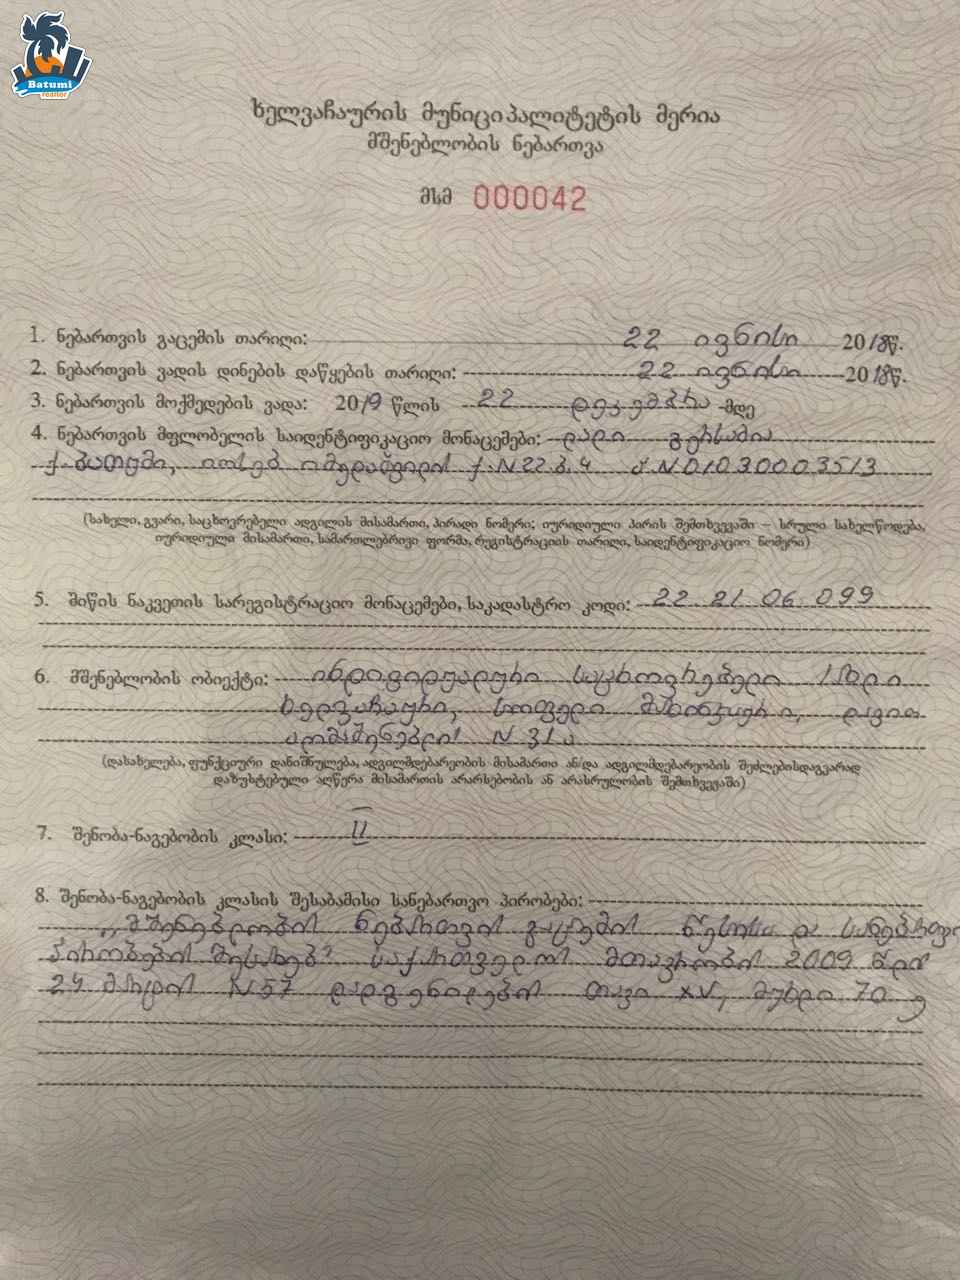 Batumi
realtor
ხელვაჩაურის მუნიციპალიტეტის მერია
მშენებლობის ნებართვა
მსმ 000042
1. ნებართვის გაცემის თარიღი: 22 ივნისი 2018წ.
2. ნებართვის ვადის დინების დაწყების თარიღი: 22 ივნისი 2018წ.
3. ნებართვის მოქმედების ვადა: 2019 წლის 22 დეკემბრა -მდე
4. ნებართვის მფლობელის საიდენტიფიკაციო მონაცემები: დალი
ქ. ბათუმი, იოსებ იმედაშვილის ქ. N22 ბ. 4 N01030003513
(სახელი, გვარი, საცხოვრებელი ადგილის მისამართი, პირადი ნომერი; იურიდიული პირის შემთხვევაში – სრული სახელწოდება,
იურიდიული მისამართი, სამართლებრივი ფორმა, რეგისტრაციის თარიღი, საიდენტიფიკაციო ნომერი)
5. მიწის ნაკვეთის სარეგისტრაციო მონაცემები, საკადასტრო კოდი: 22 21 06 099
6. მშენებლობის ობიექტი: ინდივიდუალური საცხოვრებელი სახლი
ხელვაჩაური, სოფელი მახინჯაური, დავით
აღმაშენებლის N 31ა
(დასახელება, ფუნქციური დანიშნულება, ადგილმდებარეობის მისამართი ან/და ადგილმდებარეობის შეძლებისდაგვარად
დაზუსტებული აღწერა მისამართის არარსებობის ან არასრულობის შემთხვევაში)
7. შენობა-ნაგებობის კლასი: II
8. შენობა-ნაგებობის კლასის შესაბამისი სანებართვო პირობები:
„მშენებლობის ნებართვის გაცემის წესისა და სანებართვო
პირობების შესახებ" საქართველოს მთავრობის 2009 წლის
24 მარტის N57 დადგენილების თავი XV, მუხლი 70